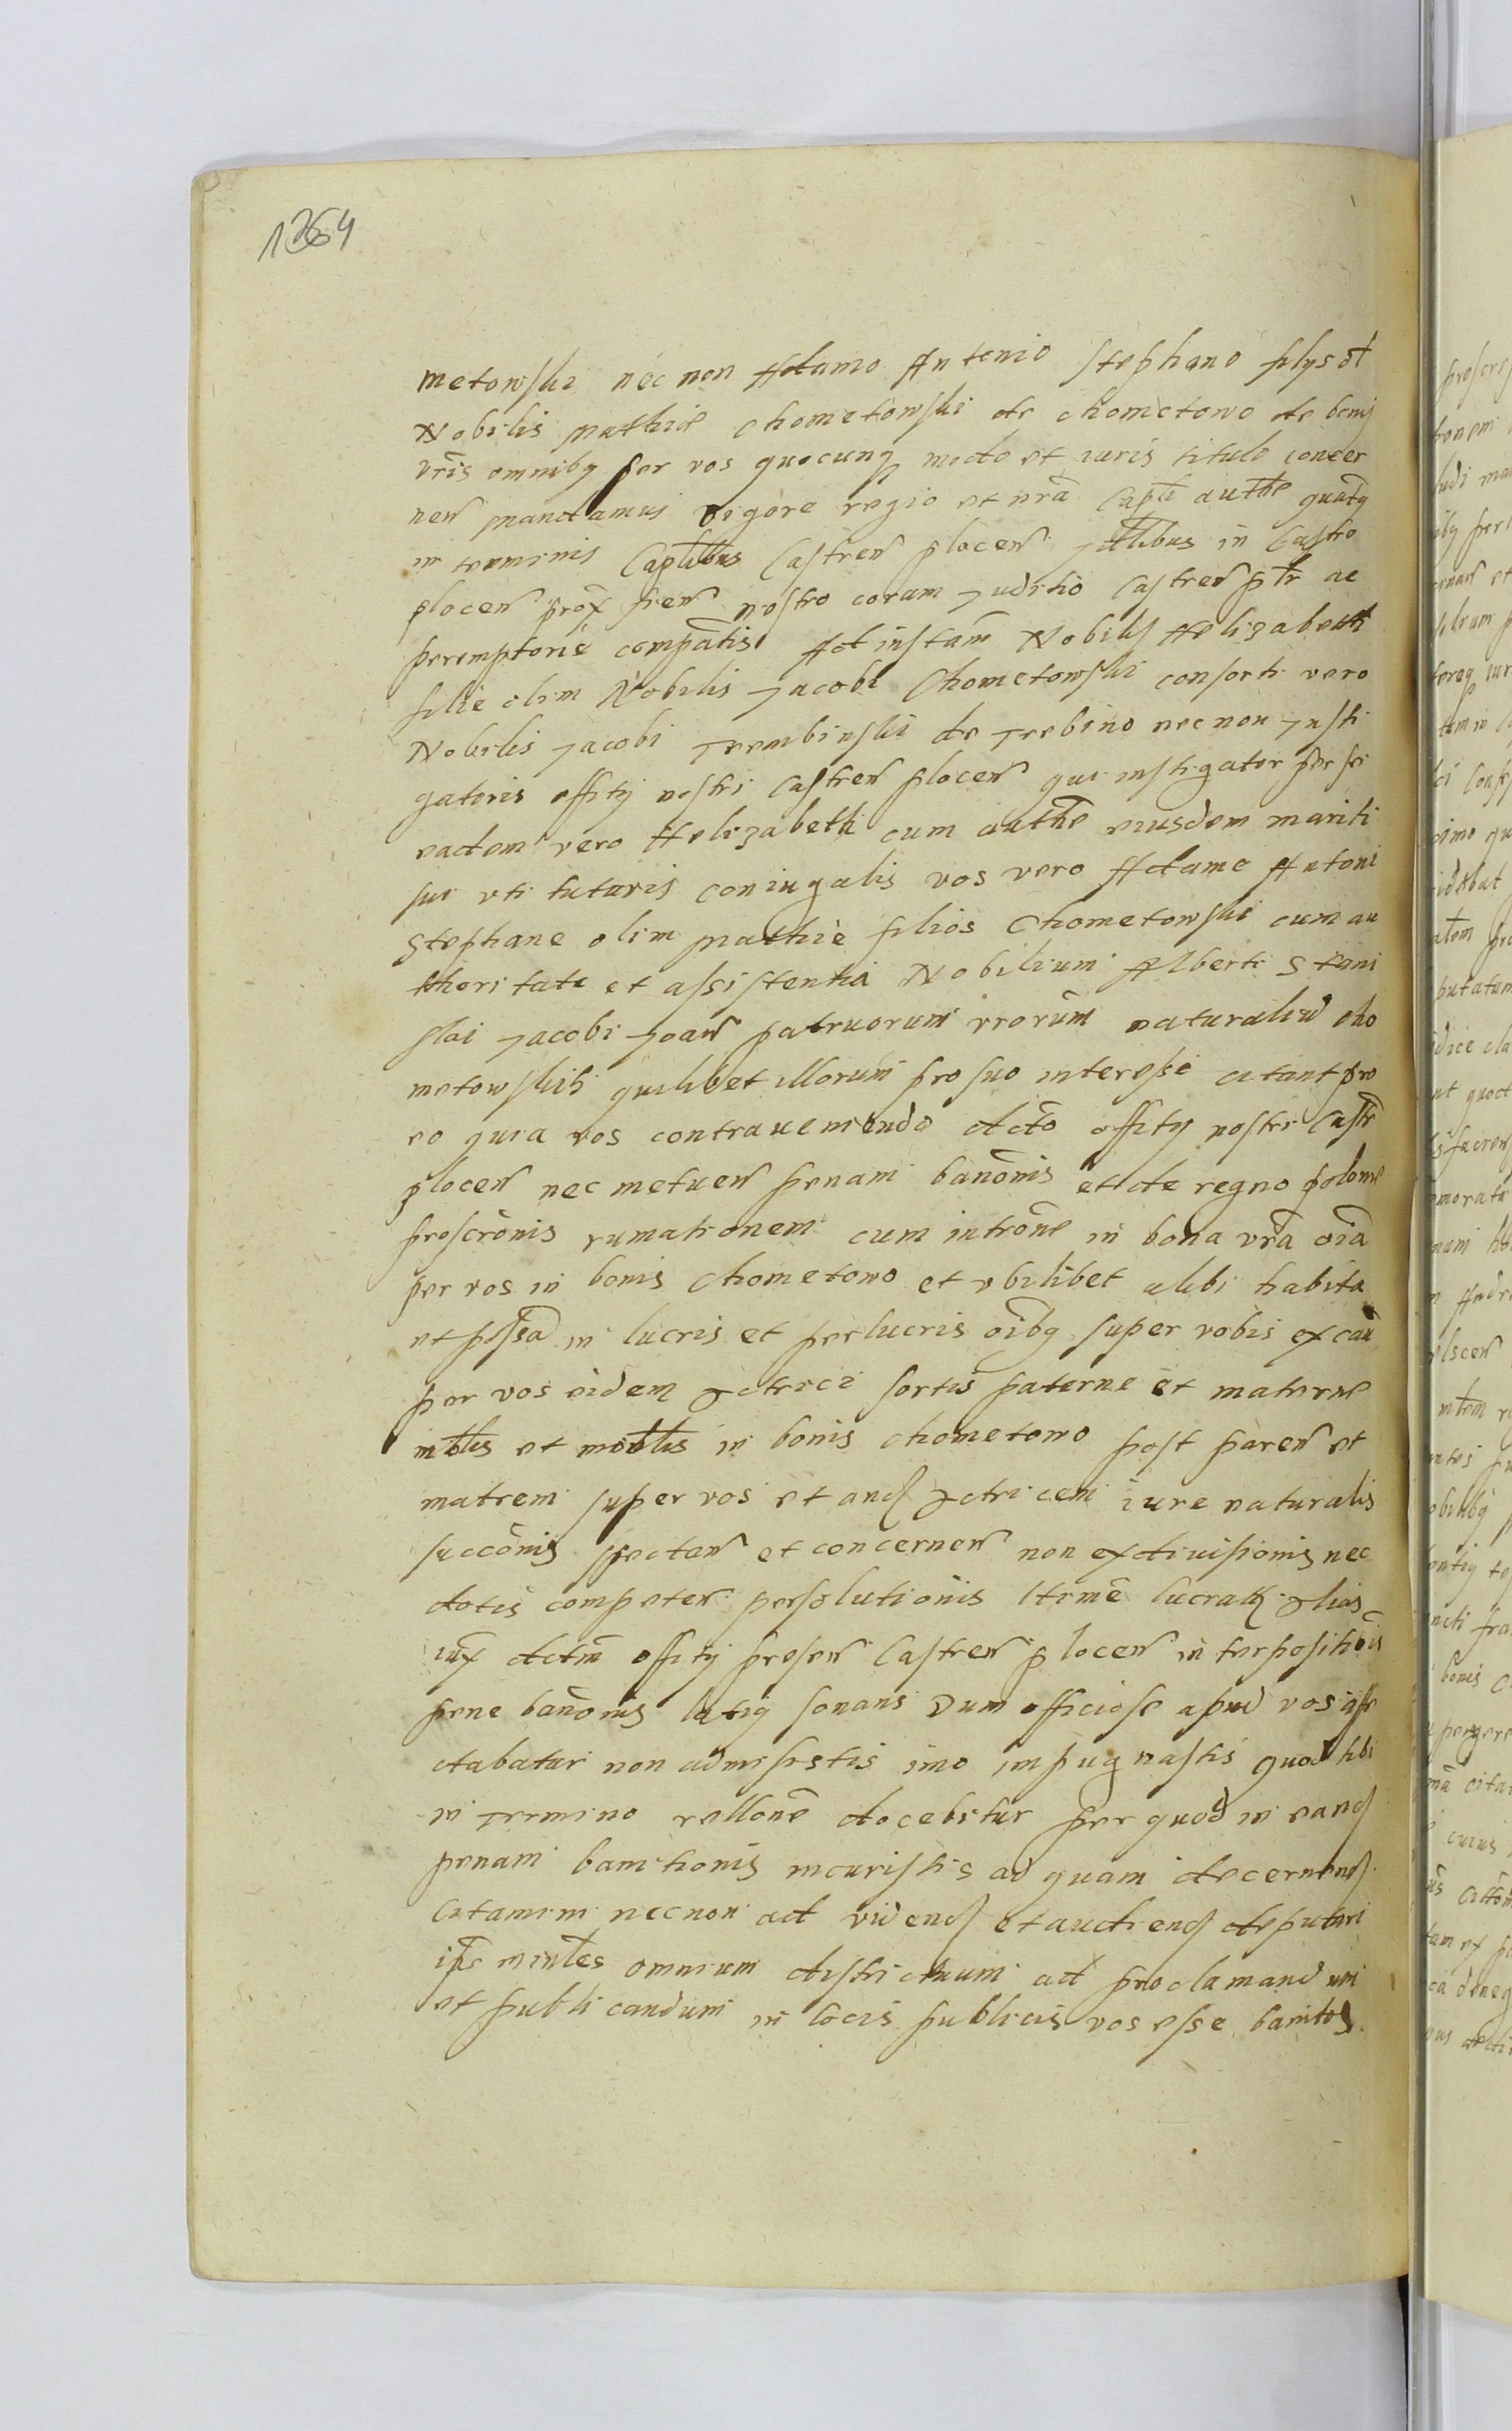 1364
metowski nec non Adamo Antonio Stephano filys ol
Nobilis Mathie Chometowski de Chometowo de bonis
vris omnibq per vos quocunq modo et iuris titulo concer
nen mandamus vigore regio et nra Capli authe quatq
in terminis Caplibus Castren plocen Jdlibus in Castro
plocen prox fien nostro coram Juditio Castren ptr ac
peremptorie compatis Ad instam Nobilis Helizabeth
filie olim Nobilis Jacobi Chometowski consorti vero
Nobilis Jacobi Trembinski de Trebino nec non Justi
gatoris offity nostri Castren plocen qui instigator per se
eadem vero Helizabeth cum authe eiusdem mariti
sui uti tutoris coniugalis vos vero Adame Antoni
Stephane olim Mathie filios Chometowski cum au
thoritate et assistentia Nobilium Alberti Stani
slai Jacobi Joan patruorum vrorum naturaliu Cho
metowskich quilibet illorum pro suo interesse citant pro
eo quia vos contraveniendo dcto offity nostri Castr
plocen nec metuen penam banonis et de regno polone
proscronis rumationem cum introne in bona vra oia
per vos in bonis Chometowo et ubilibet alibi habita
et possa in lucris et perlucris oibq super vobis ex cau
per vos eidem actrici sortis paterne et materne
mblis et moblis in bonis Chometowo post paren et
matrem super vos et and actricem iure naturalis
succonis spectan et concernen non ex divisionis nec
dotis competen persolutionis Itime lucratz alias
iux dctm offity presen Castren plocen interpositiois
pene banonis latiq sonans Dum officiose apud vos affe
ctabatur non admisistis imo impugnastis quod tibi
in Termino rellone docebitur per quod in eand
penam banitionis incuristis ad quam decernend
citamini nec non ad vidend et audiend deputari
ipse minles omnium districtuum ad proclamandum
et publicandum in locis publicis vos esse banitos